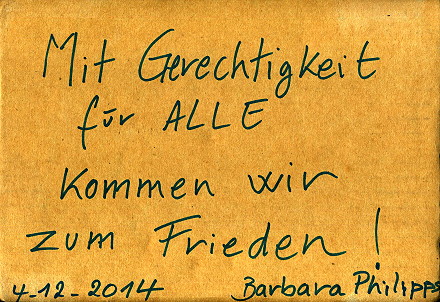 Mit Gerechtigkeit
für ALLE
kommen wir
zum Frieden!
4-12-2014 Barbara Philipps